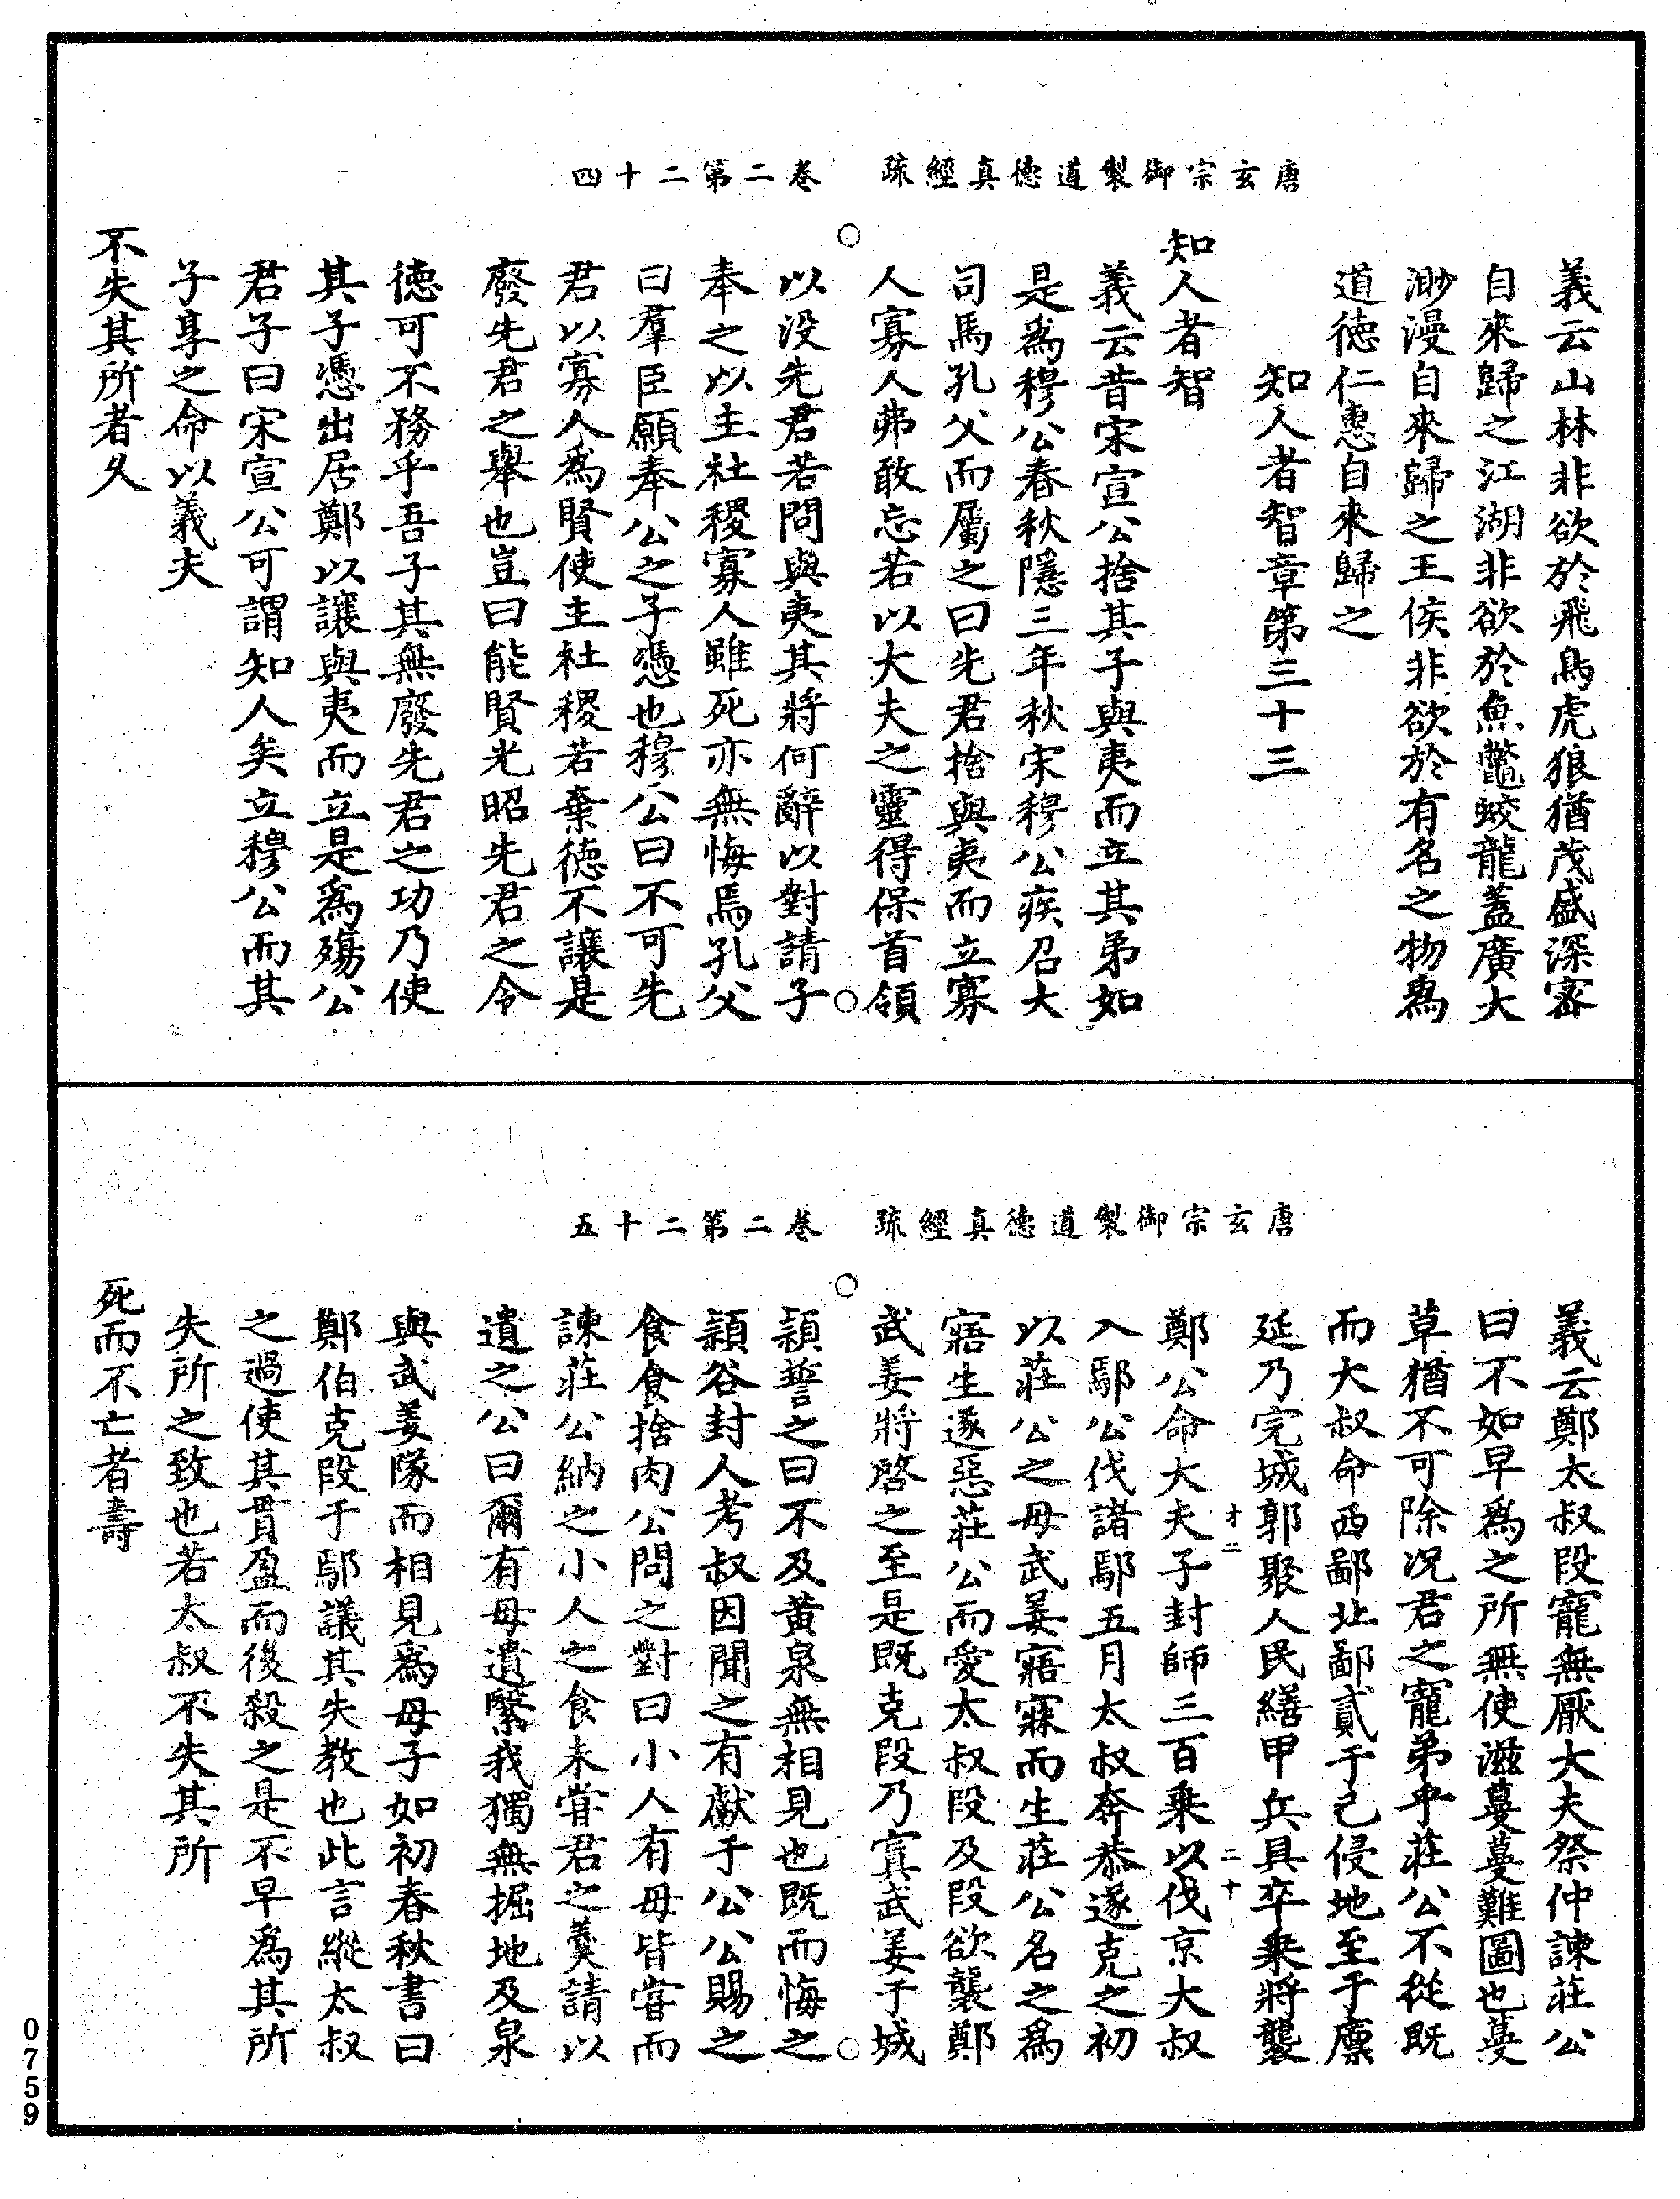 唐玄宗御製道德真經疏　卷二第二十四
義云山林非欲於飛鳥虎狼猶茂盛深密
自來歸之江湖非欲於魚鼈蛟龍蓋廣大
渺漫自來歸之王侯非欲於有名之物為
道德仁惠自來歸之
知人者智章第三十三
知人者智
義云昔宋宣公捨其子與夷而立其弟如
是為穆公春秋隱三年秋宋穆公疾召大
司馬孔父而屬之曰先君捨與夷而立寡
人寡人弗敢忘若以大夫之靈得保首領
以没先君若問與夷其將何辭以對請子
奉之以主社稷寡人雖死亦無悔焉孔父
曰羣臣願奉公之子憑也穆公曰不可先
君以寡人為賢使主社稷若棄德不讓是
廢先君之舉也豈曰能賢光昭先君之令
德可不務乎吾子其無廢先君之功乃使
其子憑出居鄭以讓與夷而立是為殤公
君子曰宋宣公可謂知人矣立穆公而其
子享之命以義夫
不失其所者久
唐玄宗御製道德真經疏　卷二第二十五
義云鄭太叔段寵無厭大夫祭仲諫莊公
曰不如早為之所無使滋蔓蔓難圖也蔓
草猶不可除况君之寵弟乎莊公不從既
而大叔命西鄙北鄙貳于己侵地至于廪
延乃完城郭聚人民繕甲兵具卒乗將襲
才二　二十
鄭公命大夫子封師三百乗以伐京大叔
入鄢公伐諸鄢五月太叔奔恭遂克之初
以莊公之母武姜寤寐而生莊公名之為
寤生遂惡莊公而愛太叔段及段欲襲鄭
武姜將啓之至是既克段乃寘武姜于城
潁誓之曰不及黄泉無相見也既而悔之
潁谷封人考叔因聞之有獻于公公賜之
食食捨肉公問之對曰小人有母皆甞而
諫莊公納之小人之食未甞君之羹請以
遺之公曰爾有母遺繄我獨無掘地及泉
與武姜隊而相見為母子如初春秋書曰
鄭伯克段于鄢議其失教也此言縱太叔
之過使其貫盈而後殺之是不早為其所
失所之致也若太叔不失其所
死而不亡者壽
0759